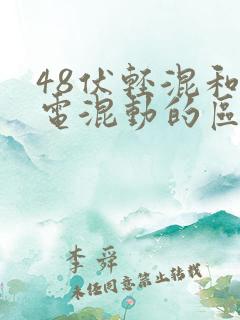 48伏輕混和
電混動的區
李舜
未经同意禁止转载